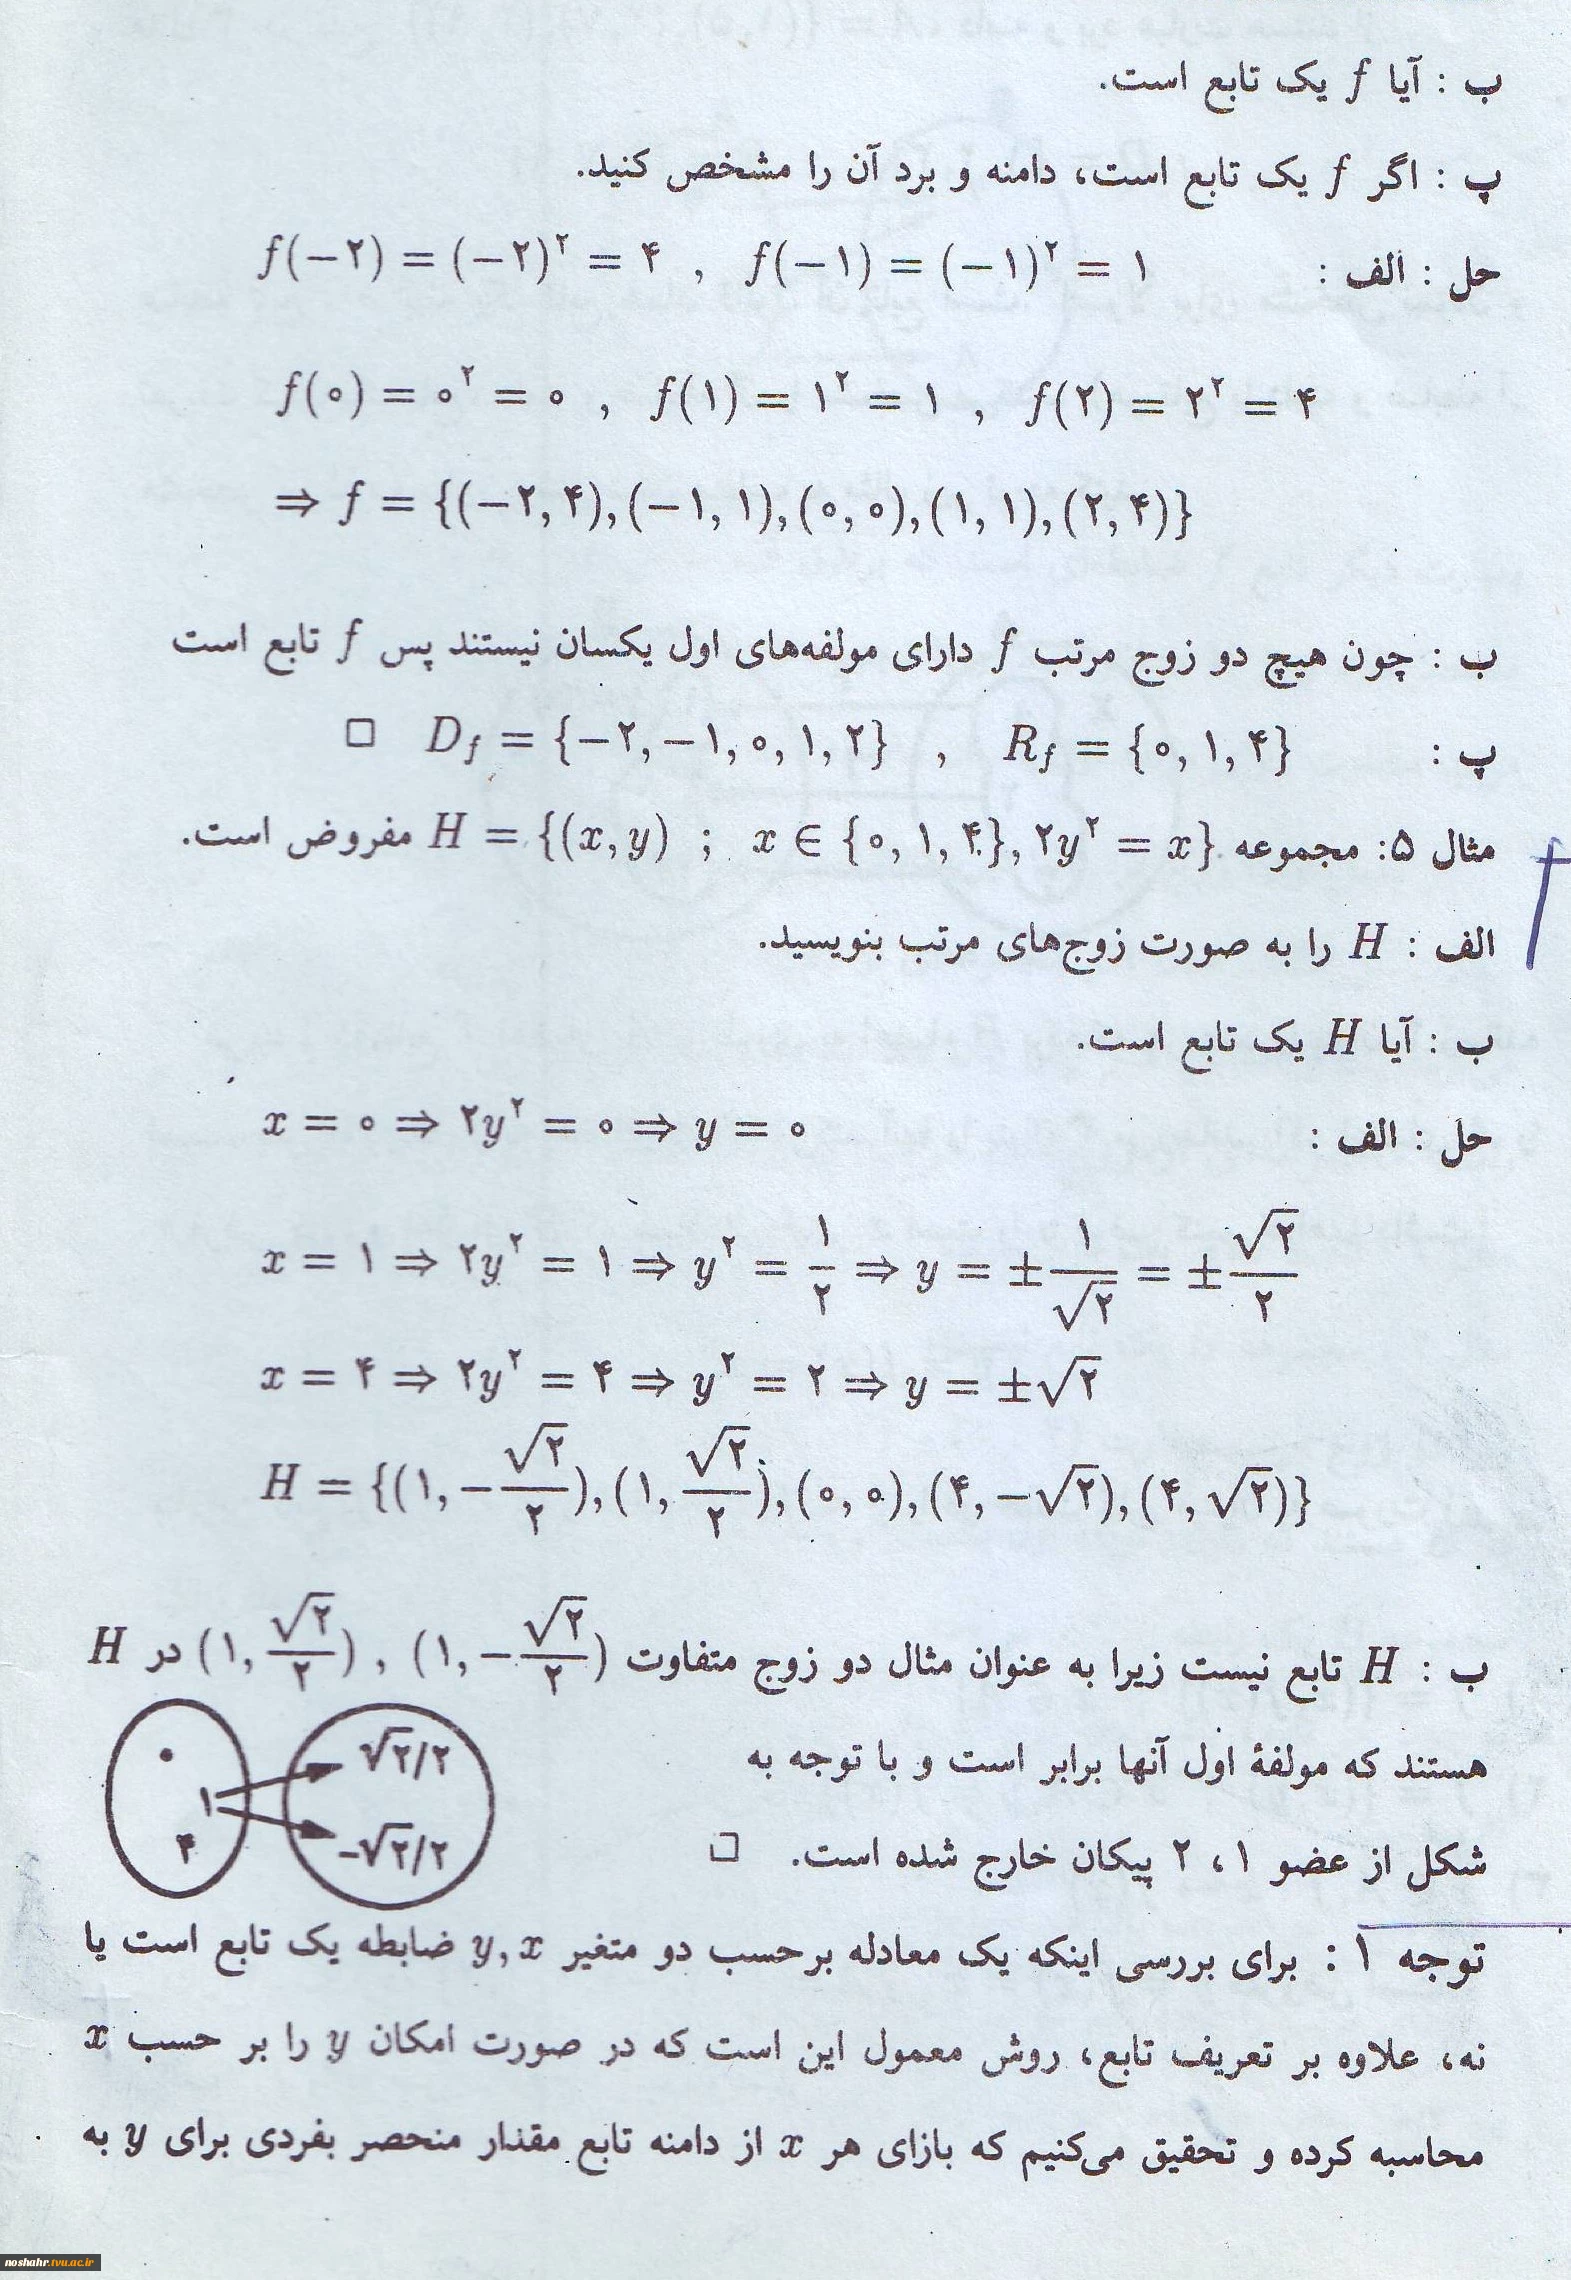 ب : آیا f یک تابع است.
پ : اگر f یک تابع است، دامنه و برد آن را مشخص کنید.
حل : الف : f(−۲) = (−۲)^۲ = ۴ , f(−۱) = (−۱)^۲ = ۱
f(۰) = ۰^۲ = ۰ , f(۱) = ۱^۲ = ۱ , f(۲) = ۲^۲ = ۴
⇒ f = {(−۲,۴),(−۱,۱),(۰,۰),(۱,۱),(۲,۴)}
ب : چون هیچ دو زوج مرتب f دارای مولفه‌های اول یکسان نیستند پس f تابع است
پ : D_f = {−۲,−۱,۰,۱,۲} , R_f = {۰,۱,۴} □
مثال ۵: مجموعه H = {(x,y) ; x ∈ {۰,۱,۴}, ۲y^۲ = x} مفروض است.
الف : H را به صورت زوج‌های مرتب بنویسید.
ب : آیا H یک تابع است.
حل : الف : x = ۰ ⇒ ۲y^۲ = ۰ ⇒ y = ۰
x = ۱ ⇒ ۲y^۲ = ۱ ⇒ y^۲ = ۱/۲ ⇒ y = ±۱/√۲ = ±√۲/۲
x = ۴ ⇒ ۲y^۲ = ۴ ⇒ y^۲ = ۲ ⇒ y = ±√۲
H = {(۱,−√۲/۲),(۱,√۲/۲),(۰,۰),(۴,−√۲),(۴,√۲)}
ب : H تابع نیست زیرا به عنوان مثال دو زوج متفاوت (۱,√۲/۲) , (۱,−√۲/۲) در H
هستند که مولفهٔ اول آنها برابر است و با توجه به
شکل از عضو ۱، ۲ پیکان خارج شده است. □
۰
۱
۴
√۲/۲
−√۲/۲
توجه ۱ : برای بررسی اینکه یک معادله برحسب دو متغیر y,x ضابطه یک تابع است یا
نه، علاوه بر تعریف تابع، روش معمول این است که در صورت امکان y را بر حسب x
محاسبه کرده و تحقیق می‌کنیم که بازای هر x از دامنه تابع مقدار منحصر بفردی برای y به
noshahr.tvu.ac.ir